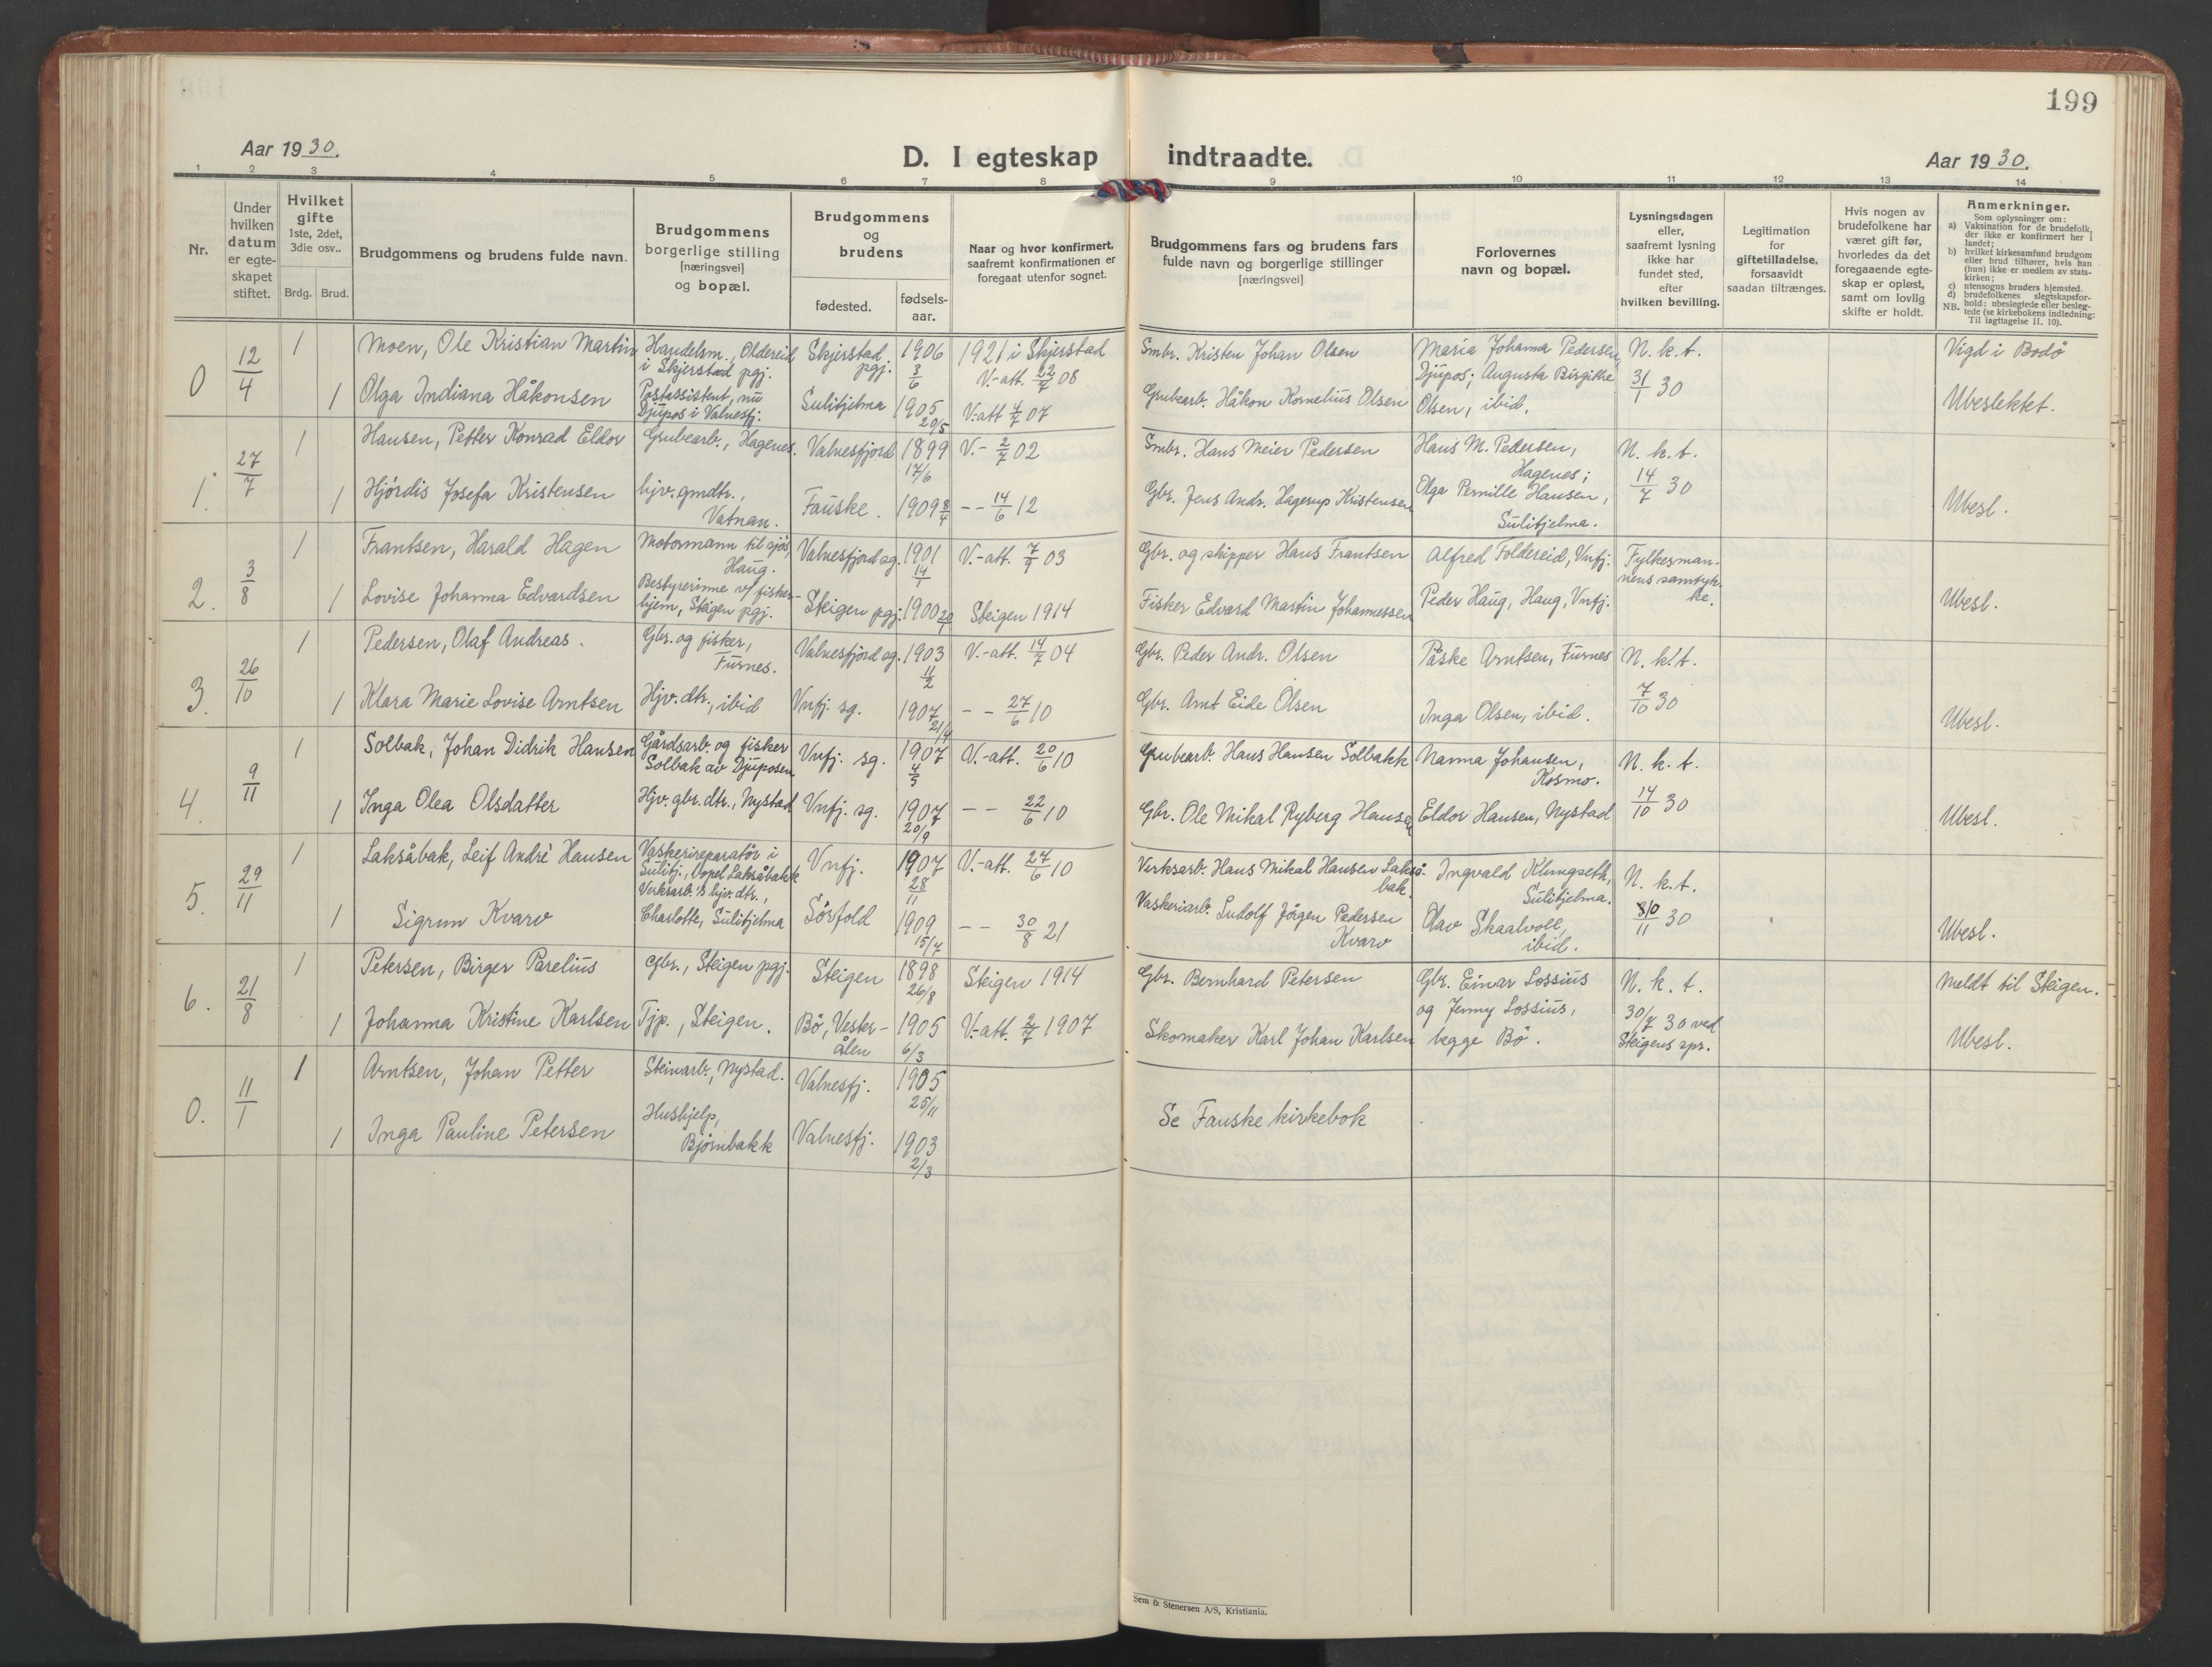 199
Aar 1930.
D. I egteskap indtraadte.
Aar 1930.
1 2 3 4 5 6 7 8 9 10 11 12 13 14
Nr.
Under
hvilken
datum
er egte-
skapet
stiftet.
Hvilket
gifte
1ste, 2det,
3die osv..
Brdg. Brud.
Brudgommens og brudens fulde navn.
Brudgommens
borgerlige stilling
[næringsvei]
og bopæl.
Brudgommens
og
brudens
fødested.
fødsels-
aar.
Naar og hvor konfirmert,
saafremt konfirmationen er
foregaat utenfor sognet.
Brudgommens fars og brudens fars
fulde navn og borgerlige stillinger
[næringsvei]
Forlovernes
navn og bopæl.
Lysningsdagen
eller,
saafremt lysning
ikke har
fundet sted,
efter
hvilken bevilling.
Legitimation
for
giftetilladelse,
forsaavidt
saadan tiltrænges.
Hvis nogen av
brudefolkene har
været gift før,
hvorledes da det
foregaaende egte-
skap er opløst,
samt om lovlig
skifte er holdt.
Anmerkninger.
Som oplysninger om:
a) Vaksination for de brudefolk,
der ikke er konfirmert her i
landet;
b) hvilket kirkesamfund brudgom
eller brud tilhører, hvis han
(hun) ikke er medlem av stats-
kirken;
c) utensogns bruders hjemsted.
d) brudefolkenes slegtskapsfor-
NB. hold: ubeslegtede eller besleg-
tede (se kirkebokens indledning:
Til iagttagelse II. 10).
0 12/4 1 Moen, Ole Kristian Martin
Handelsm., Oldereid
i Skjerstad pgj.
Skjerstad
pgj.
1906
3/6
1921 i Skjerstad
V.-att. 22/7 08
Smbr. Kristen Johan Olsen
Maria Johanna Pedersen,
Djupos; Augusta Birgitte
Olsen, ibid.
N. k. t.
31/1 30
Vigd i Bodö
1 Olga Indiana Håkonsen
Postassistent, nu
Djupos i Valnesfj.
Sulitjelma
1905
20/5
V.att 4/7 07
Grubearb. Håkon Kornelius Olsen
Ubeslektet.
1. 27/7 1 Hansen, Petter Konrad Eldor
Grubearb., Hagenes.
Valnesfjord
1899
17/6
V.- 2/7 02
Smbr. Hans Meier Pedersen
Hans M. Pedersen,
Hagenes;
N. k. t.
14/7 30
1 Hjördis Josefa Kristensen
hjv. gmdtr.,
Vatnan.
Fauske.
1909 8/4
-- 14/6 12
Gbr. Jens Andr. Hagerup Kristensen
Olga Pernille Hansen,
Sulitjelma.
Ubesl.
2. 3/8 1 Frantsen, Harald Hagen
Motormann til sjøs,
Haug.
Valnesfjord sg.
1901
14/1
V.-att. 7/9 03
Gbr. og skipper Hans Frantsen
Alfred Foldereid, Vnfj.
Fylkesman-
nens samtyk-
ke.
1 Lovise Johanna Edvardsen
Bestyrerinne v/ fisker-
hjem, Steigen pgj.
Steigen pgj.
1900 20/1
Steigen 1914
Fisker Edvard Martin Johannessen
Peder Haug, Haug, Vnfj.
Ubesl.
3. 26/10 1 Pedersen, Olaf Andreas.
Gbr. og fisker,
Furnes.
Valnesfjord sg.
1903
11/2
V.-att. 14/7 04
Gbr. Peder Andr. Olsen
Påske Arntsen, Furnes
N. k. t.
7/10 30
1 Klara Marie Lovise Arntsen
Hjv. dtr., ibid
Vnfj. sg.
1907
21/4
-- 27/6 10
Gbr. Arnt Eide Olsen
Inga Olsen, ibid.
Ubesl.
4. 9/11 1 Solbak, Johan Didrik Hansen
Gårdsarb. og fisker
Solbak av Djuposen
Vnfj. sg.
1907
4/5
V.-att. 20/6 10
Grubearb. Hans Hansen Solbakk
Nanna Johansen,
Kosmo.
N. k. t.
14/10 30
1 Inga Olea Olsdatter
Hjv. gbr. dtr., Nystad
Vnfj. sg.
1907
20/9
-- 22/6 10
Gbr. Ole Mikal Ryberg Hansen
Eldor Hansen, Nystad
Ubesl.
5. 29/11 1 Laksåbak, Leif Andrè Hansen
Vaskerireparatör i
Sulitj., Bopel Laksåbakk
Vnfj.
1907
28/11
V.-att. 27/6 10
Verksarb. Hans Mikal Hansen Lakså-
bak.
Ingvald Klungseth,
Sulitjelma.
N. k. t.
8/11 30
1 Sigrun Kvarv
Verksarb.'s hjv. dtr.,
Charlotte, Sulitjelma
Sörfold
1909
15/7
-- 30/8 21
Vaskeriarb. Ludolf Jörgen Pedersen
Kvarv
Olav Skaalvoll,
ibid.
Ubesl.
6. 21/8 1 Petersen, Birger Parelius
Gbr., Steigen pgj.
Steigen
1898
26/8
Steigen 1914
Gbr. Bernhard Petersen
Gbr. Einar Lossius
og Jenny Lossius,
begge Bö.
N. k. t.
30/7 30 ved
Steigens spr.
Meldt til Steigen.
1 Johanna Kristine Karlsen
Tjp., Steigen.
Bö, Vester-
ålen
1905
6/3
V.-att. 2/7 1907
Skomaker Karl Johan Karlsen
Ubesl.
0. 11/1 1 Arntsen, Johan Petter
Steinarb., Nystad.
Valnesfj.
1905
25/11
Se Fauske kirkebok
1 Inga Pauline Petersen
Hushjelp,
Bjørnbakk
Valnesfj.
1903
2/3
Sem & Stenersen A/S, Kristiania.